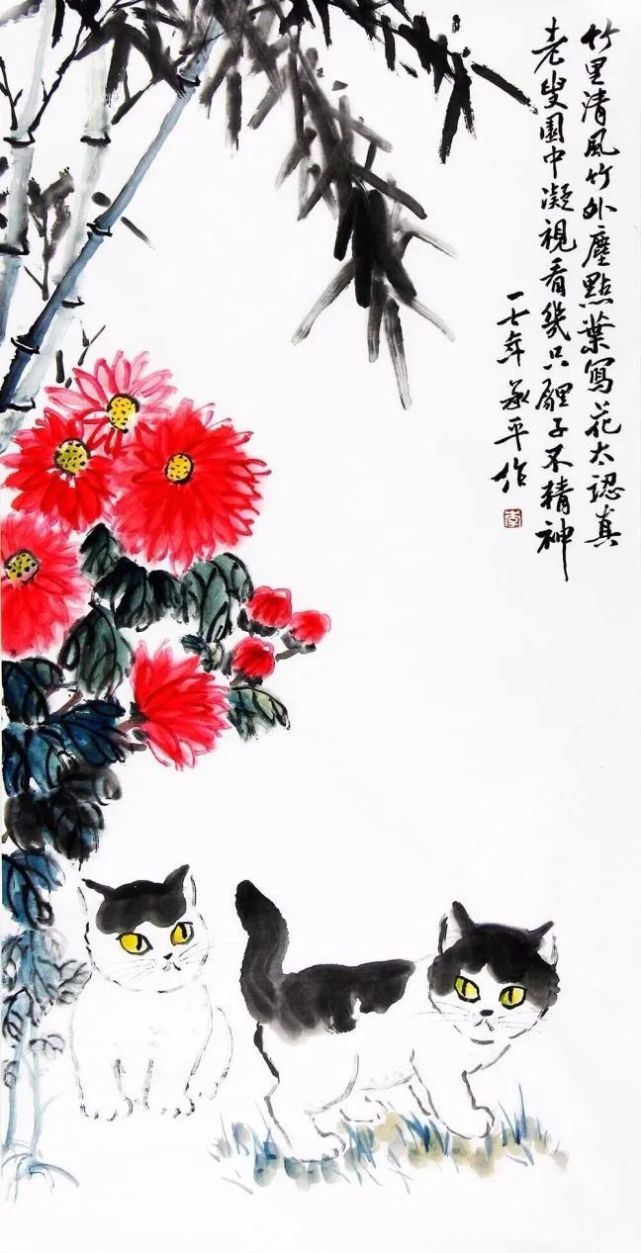 竹里清風竹外塵點葉寫花太認真
老叟園中凝視看幾只貍子不精神
一七年承平作
李